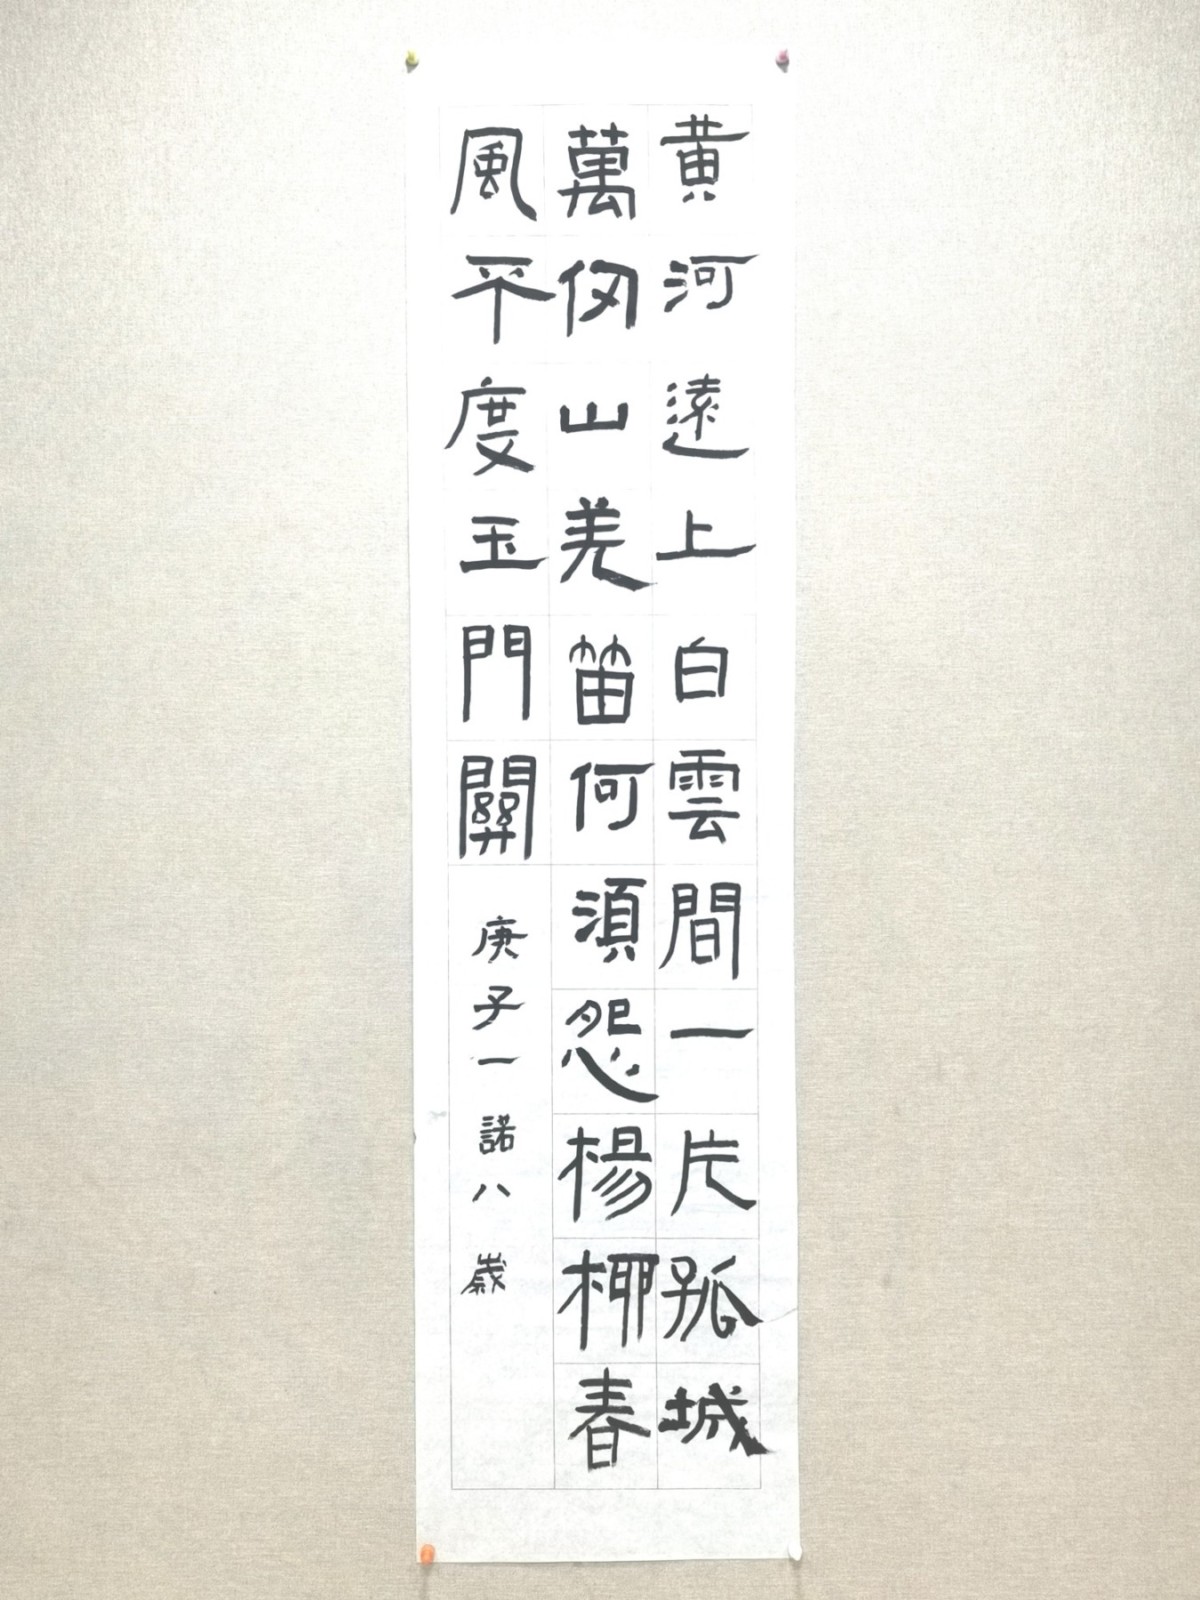 黄河遠上白雲間一片孤城
萬仞山羌笛何須怨楊柳春
風不度玉門關
庚子一諾八歲